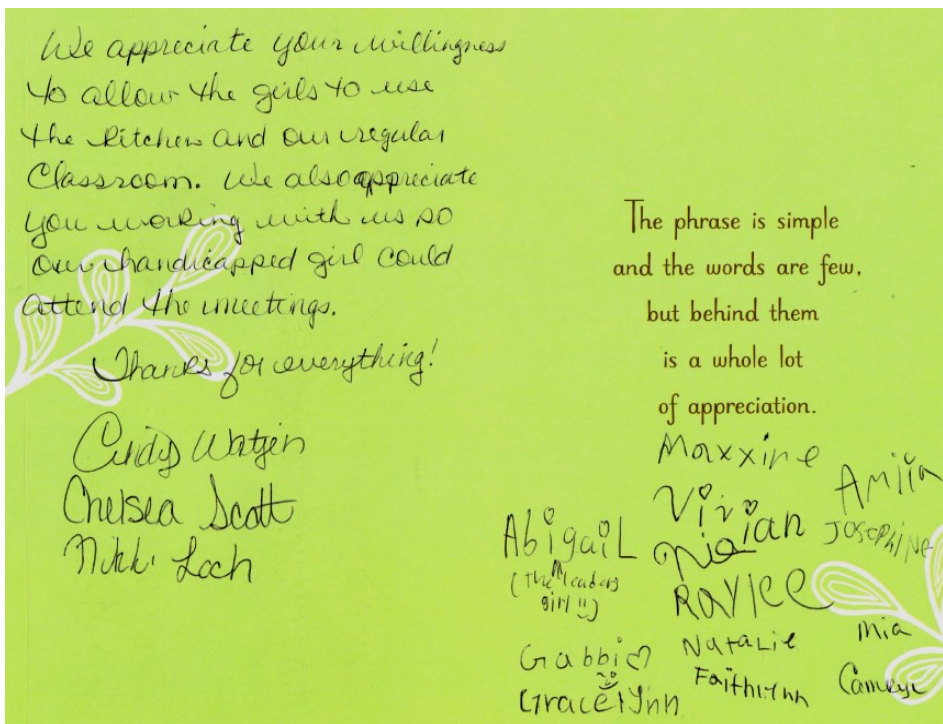 We appreciate your willingness
to allow the girls to use
the kitchen and our regular
Classroom. We also appreciate
you working with us so
our handicapped girl could
attend the meetings.
Thanks for everything!
Cindy
Chelsea Scott
Nikki Loch
The phrase is simple
and the words are few,
but behind them
is a whole lot
of appreciation.
Maxxine
Amiia
Vivian
Josephine
Abigail
(the leaders
girl !!)
Raylee
Mia
Natalie
Gabbi
Faithlynn
Gracelynn